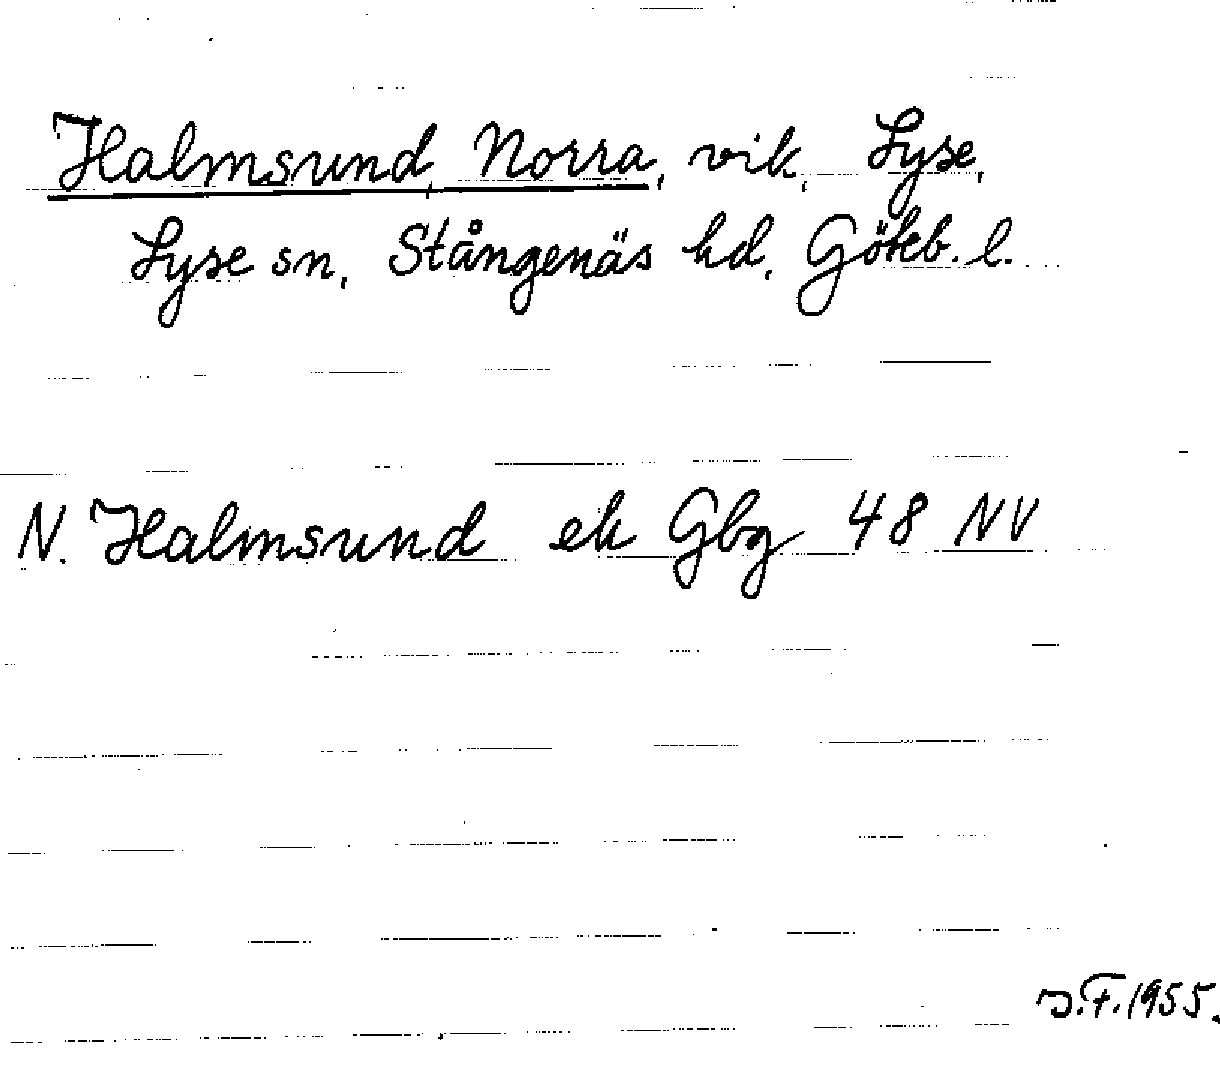 Halmsund, Norra, vik, Lyse,
Lyse sn, Stångenäs hd, Göteb. l.
N. Halmsund ek Gbg 48 NV
J.F. 1955.